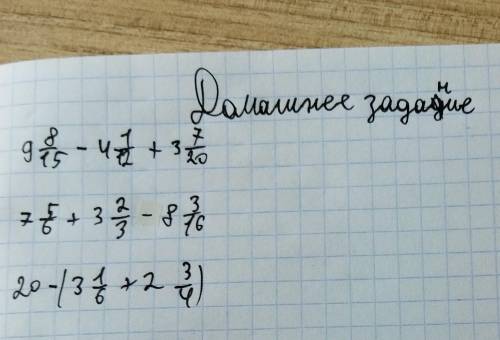 Домашнее задание
9 8/15 - 4 1/12 + 3 7/20
7 5/6 + 3 2/3 - 8 3/16
20 - (3 1/6 + 2 3/4)